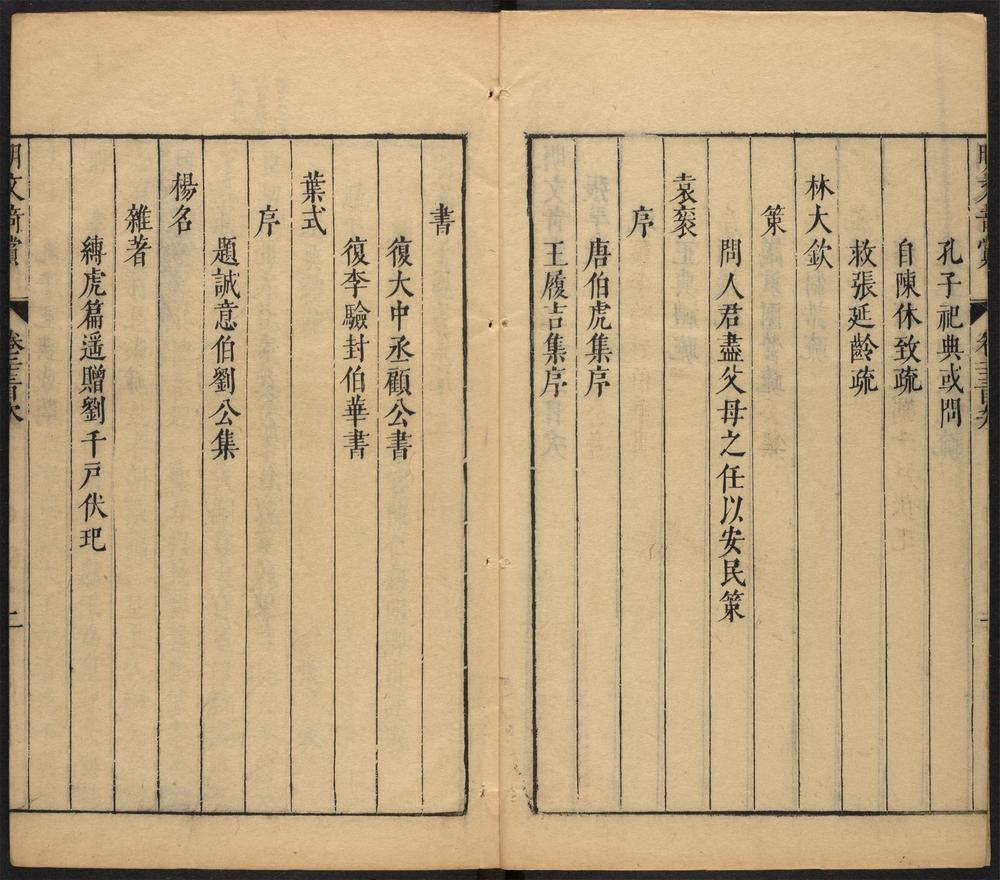 孔子祀典或問
自陳休致疏
救張延齡疏
林大欽
策
問人君盡父母之任以安民策
袁袠
序
唐伯虎集序
王履吉集序
書
復大中丞顧公書
復李驗封伯華書
葉式
序
題誠意伯劉公集
楊名
雜著
縛虎篇遥贈劉千戶伏玘
明文奇賞
二